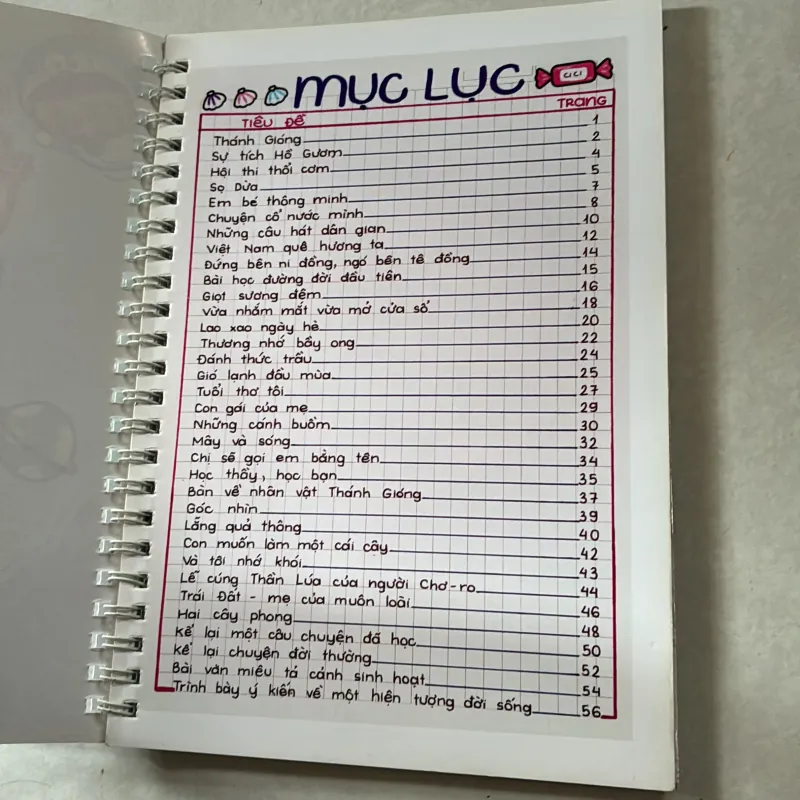 MỤC LỤC CICI
TIÊU ĐỀ TRANG
Thánh Gióng 1
Sự tích Hồ Gươm 2
Hội thi thổi cơm 4
Sọ Dừa 5
Em bé thông minh 7
Chuyện cổ nước mình 8
Những câu hát dân gian 10
Việt Nam quê hương ta 12
Đứng bên ni đồng, ngó bên tê đồng 14
Bài học đường đời đầu tiên 15
Giọt sương đêm 16
Vừa nhắm mắt vừa mở cửa sổ 18
Lao xao ngày hè 20
Thương nhớ bầy ong 22
Đánh thức trầu 24
Gió lạnh đầu mùa 25
Tuổi thơ tôi 27
Con gái của mẹ 29
Những cánh buồm 30
Mây và sóng 32
Chị sẽ gọi em bằng tên 34
Học thầy, học bạn 35
Bàn về nhân vật Thánh Gióng 37
Góc nhìn 39
Lẵng quả thông 40
Con muốn làm một cái cây 42
Và tôi nhớ khói 43
Lễ cúng Thần Lúa của người Chơ-ro 44
Trái Đất - mẹ của muôn loài 46
Hai cây phong 48
Kể lại một câu chuyện đã học 50
Kể lại chuyện đời thường 52
Bài văn miêu tả cảnh sinh hoạt 54
Trình bày ý kiến về một hiện tượng đời sống 56